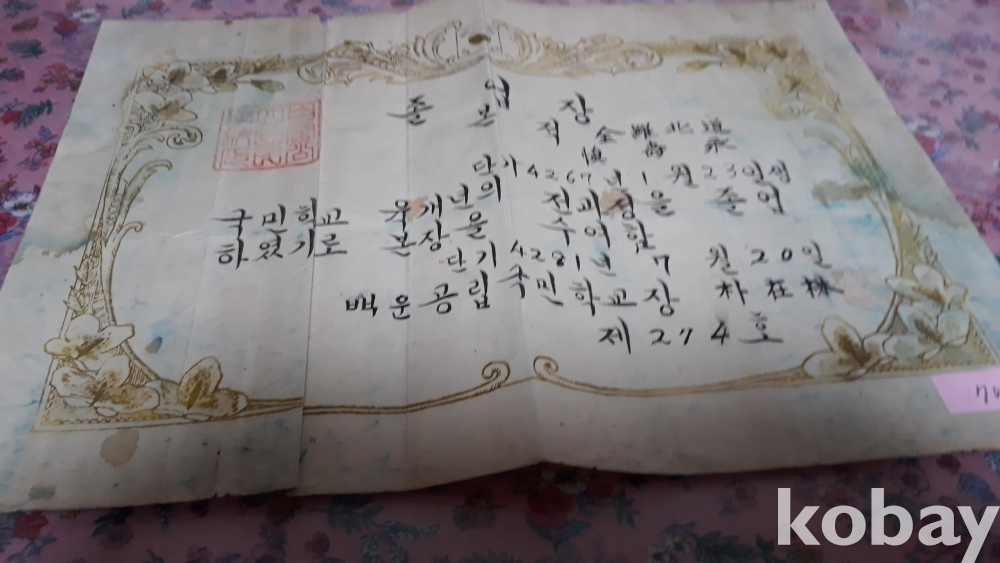 졸업장
본적 全羅北道
愼南永
단기4267년1월23일생
국민학교 육개년의 전과정을 졸업
하였기로 본장을 수여함
단기4281년 7월20일
백운공립국민학교장 朴在林
제274호
kobay